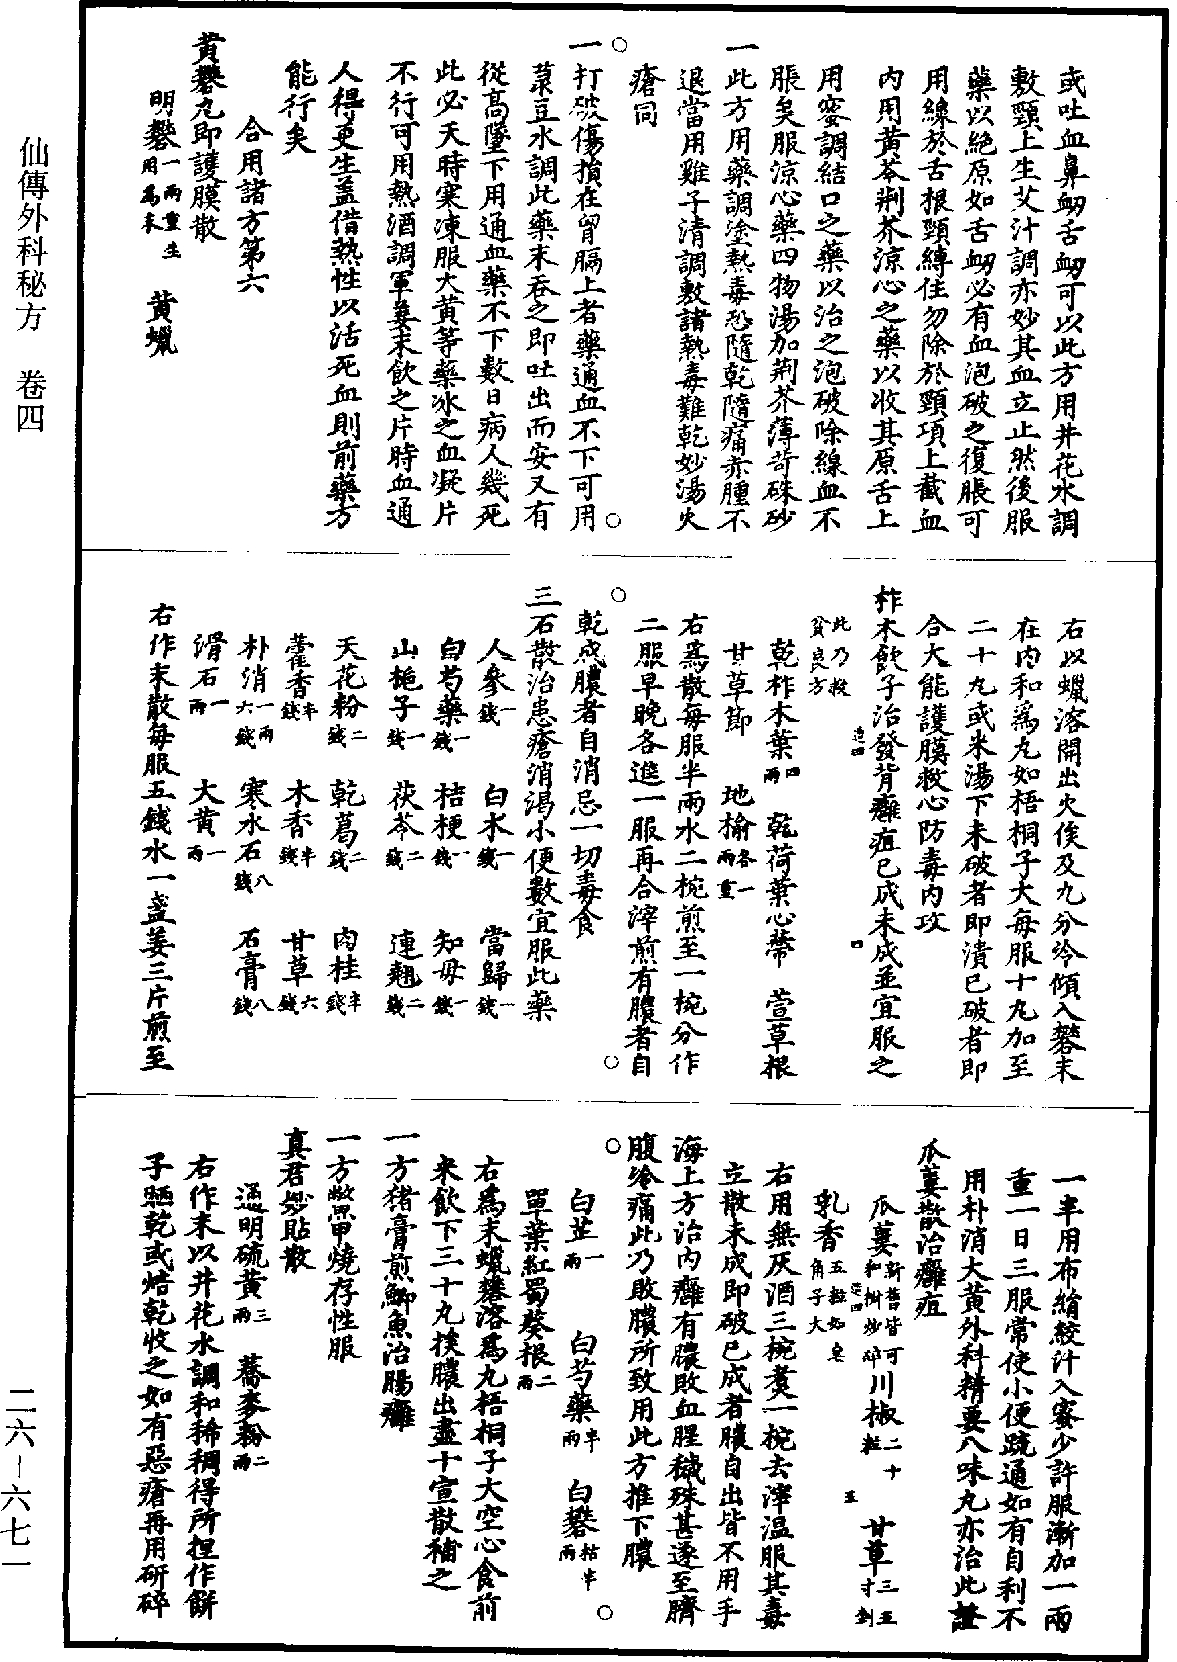 或吐血鼻衂舌衂可以此方用井花水調
敷頸上生艾汁調亦妙其血立止然後服
藥以絶原如舌衂必有血泡破之復脹可
用線於舌根頸縛住勿除於頸項上截血
内用黄芩荆芥涼心之藥以收其原舌上
用蜜調結口之藥以治之泡破除線血不
脹矣服涼心藥四物湯加荆芥薄苛硃砂
一此方用藥調塗熱毒恐隨乾隨痛赤腫不
退當用雞子清調敷諸熱毒難乾妙湯火
瘡同
一打破傷損在胷膈上者藥通血不下可用
菉豆水調此藥末吞之即吐出而安又有
從高墜下用通血藥不下數日病人幾死
此必天時寒凍服大黄等藥冰之血凝片
不行可用熱酒調軍姜末飲之片時血通
人得更生盖借熱性以活死血則前藥方
能行矣
合用諸方第六
黄礬丸即護膜散
明礬一兩重生用爲末 黄蠟
右以蠟溶開出火俟及九分冷傾入礬末
在内和爲丸如梧桐子大每服十丸加至
二十丸或米湯下未破者即潰已破者即
合大能護膜救心防毒内攻
柞木飲子治發背癰疽已成未成並宜服之
此乃救貧良方
乾柞木葉四兩 乾荷葉心蔕 萱草根
甘草節 地榆各一兩重
右爲散每服半兩水二椀煎至一椀分作
二服早晚各進一服再合滓煎有膿者自
乾成膿者自消忌一切毒食
三石散治患瘡消渴小便數宜服此藥
人參一錢 白术一錢 當歸一錢
白芍藥一錢 桔梗一錢 知母一錢
山梔子一錢 茯苓二錢 連翹二錢
天花粉二錢 乾葛二錢 肉桂半錢
藿香半錢 木香半錢 甘草六錢
朴消一兩六錢 寒水石八錢 石膏八錢
滑石一兩 大黄一兩
右作末散每服五錢水一盞姜三片煎至
一半用布絹絞汁入蜜少許服漸加一兩
重一日三服常使小便疏通如有自利不
用朴消大黄外科精要八味丸亦治此證
瓜蔞散治癰疽
瓜蔞新舊皆可和樹炒碎 川椒二十粒 甘草三五寸剉
乳香五粒如皂角子大
右用無灰酒三椀煑一椀去滓温服其毒
立散未成即破已成者膿自出皆不用手
海上方治内癰有膿敗血腥穢殊甚遂至臍
腹冷痛此乃敗膿所致用此方推下膿
白芷一兩 白芍藥半兩 白礬枯半兩
單葉紅蜀葵根二兩
右爲末蠟礬溶爲丸梧桐子大空心食前
米飲下三十丸挨膿出盡十宣散補之
一方猪膏煎鯽魚治腸癰
一方鱉甲燒存性服
真君妙貼散
通明硫黄三兩 蕎麥粉二兩
右作末以井花水調和稀稠得所捏作餅
子晒乾或焙乾收之如有惡瘡再用研碎
仙傳外科秘方 卷四
二六－六七一